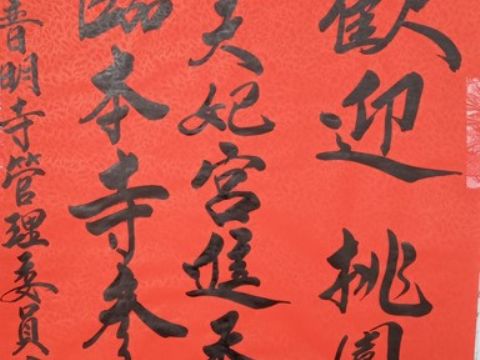 歡迎 桃園
天妃宮進香
臨本寺參
普明寺管理委員